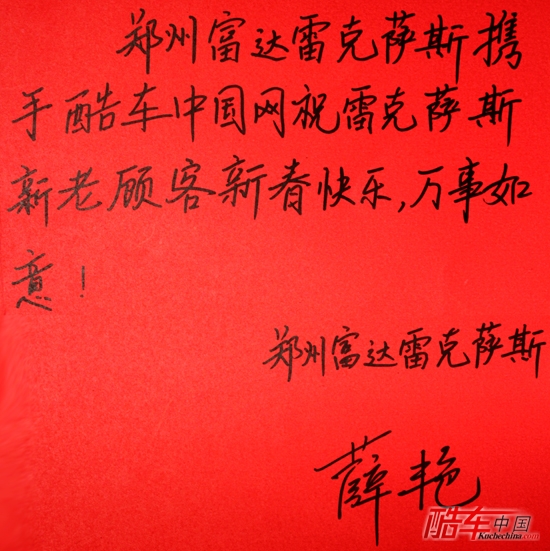 郑州富达雷克萨斯携
手酷车中国网祝雷克萨斯
新老顾客新春快乐,万事如
意!
郑州富达雷克萨斯
薛艳
酷车中国
Kuchechina.com